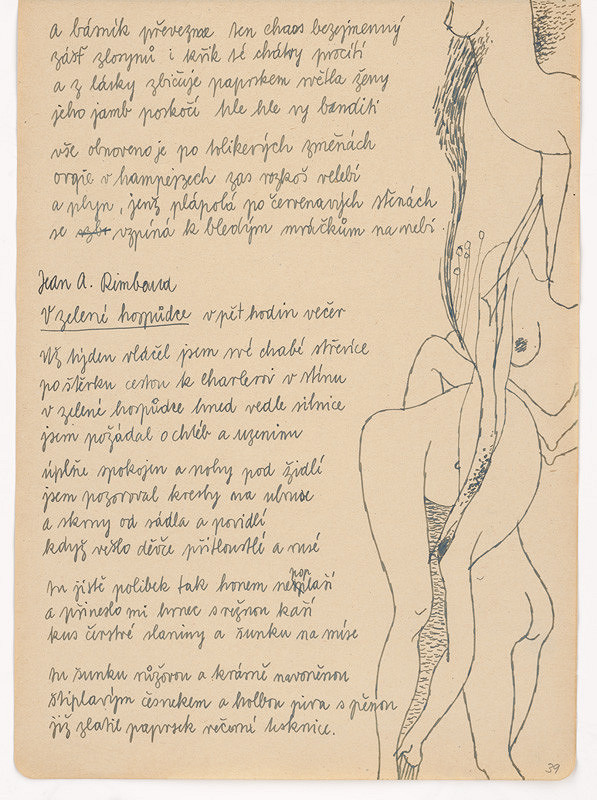 a básník převezme ten chaos bezejmenný
zášť zlosynů i křik té chátry procítí
a z lásky zbičuje paprskem světla ženy
jeho jamb poskočí hle hle vy banditi
vše obnoveno je po tolikerých změnách
orgie v hampejzech zas rozkoš velebí
a plyn, jenž plápolá po červenavých stěnách
se vzpíná k bledým mráčkům na nebi.
Jean A. Rimbaud
V zelené hospůdce v pět hodin večer
Už týden vláčel jsem své chabé střevíce
po štěrku cestou k charleroi v stínu
v zelené hospůdce hned vedle silnice
jsem požádal o chléb a uzeninu
úplně spokojen a nohy pod židlí
jsem pozoroval kresby na ubruse
a skvrny od sádla a povidlí
když vešlo děvče přitloustlé a rusé
tu jistě polibek tak honem nepoplaší
a přineslo mi hrnec s režnou kaší
kus čerstvé slaniny a šunku na míse
tu šunku růžovou a krásně navoněnou
štiplavým česnekem a holbou piva s pěnou
již zlatil paprsek večerní
39